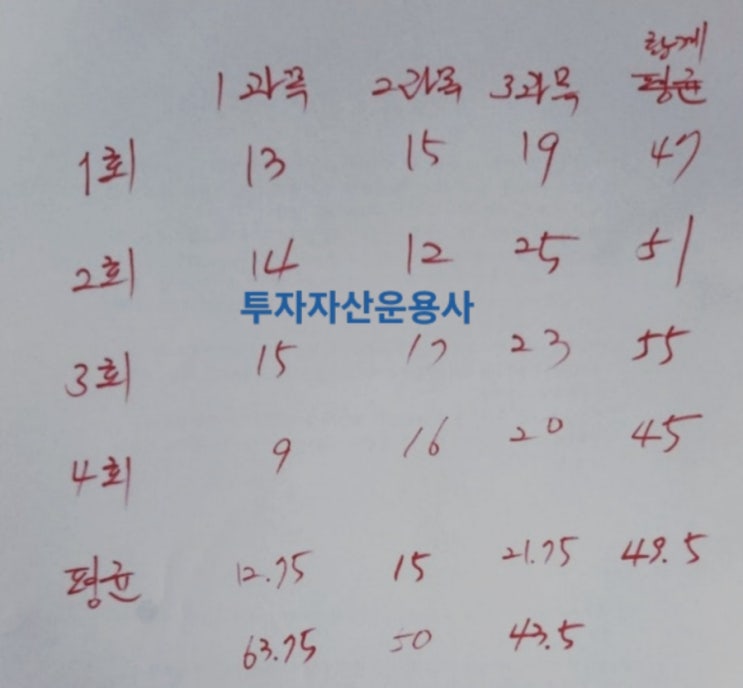 합계
1과목 2과목 3과목 평균
1회 13 15 19 47
2회 14 12 25 51
투자자산운용사
3회 15 17 23 55
4회 9 16 20 45
평균 12.75 15 21.75 49.5
63.75 50 43.5